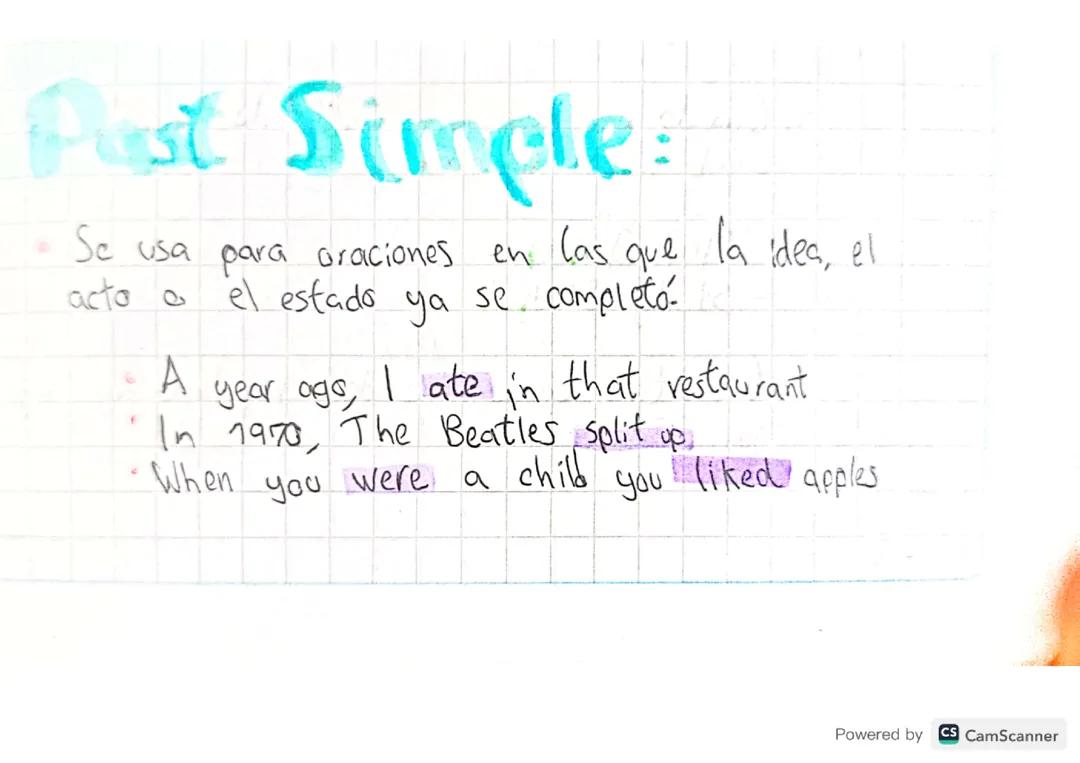 Past Simple:
Se usa para oraciones en las que la idea, el
acto o el estado ya se completó.
A year ago, I ate in that restaurant
In 1970, The Beatles split up
When you were a child you liked apples
Powered by CS CamScanner